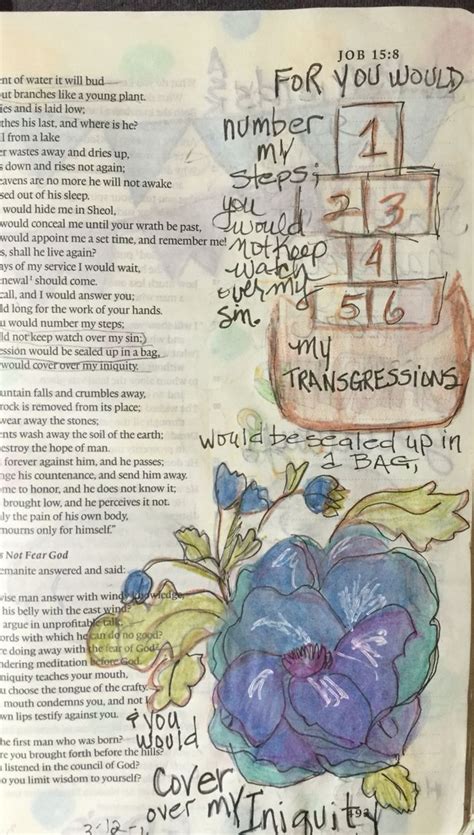 JOB 15:8
nt of water it will bud
ut branches like a young plant.
ies and is laid low;
thes his last, and where is he?
l from a lake
er wastes away and dries up,
s down and rises not again;
eavens are no more he will not awake
sed out of his sleep.
would hide me in Sheol,
would conceal me until your wrath be past,
would appoint me a set time, and remember me!
s, shall he live again?
ays of my service I would wait,
newal should come.
call, and I would answer you;
ld long for the work of your hands.
u would number my steps;
ld not keep watch over my sin;
ession would be sealed up in a bag,
would cover over my iniquity.
untain falls and crumbles away,
rock is removed from its place;
wear away the stones;
nts wash away the soil of the earth;
estroy the hope of man.
forever against him, and he passes;
nge his countenance, and send him away.
me to honor, and he does not know it;
brought low, and he perceives it not.
ly the pain of his own body,
mourns only for himself."
s Not Fear God
emanite answered and said:
wise man answer with windy knowledge,
his belly with the east wind?
argue in unprofitable talk,
ords with which he can do no good?
re doing away with the fear of God
ndering meditation before God.
niquity teaches your mouth,
u choose the tongue of the crafty.
mouth condemns you, and not I
wn lips testify against you.
he first man who was born?
re you brought forth before the hills?
u listened in the council of God?
o you limit wisdom to yourself?
FOR YOU WOULD
number
my
steps;
you
would
not keep
watch
over my
sin.
1
2 3
4
5 6
my
TRANSGRESSIONS
would be sealed up in
a BAG,
& you
would
Cover
over my Iniquity